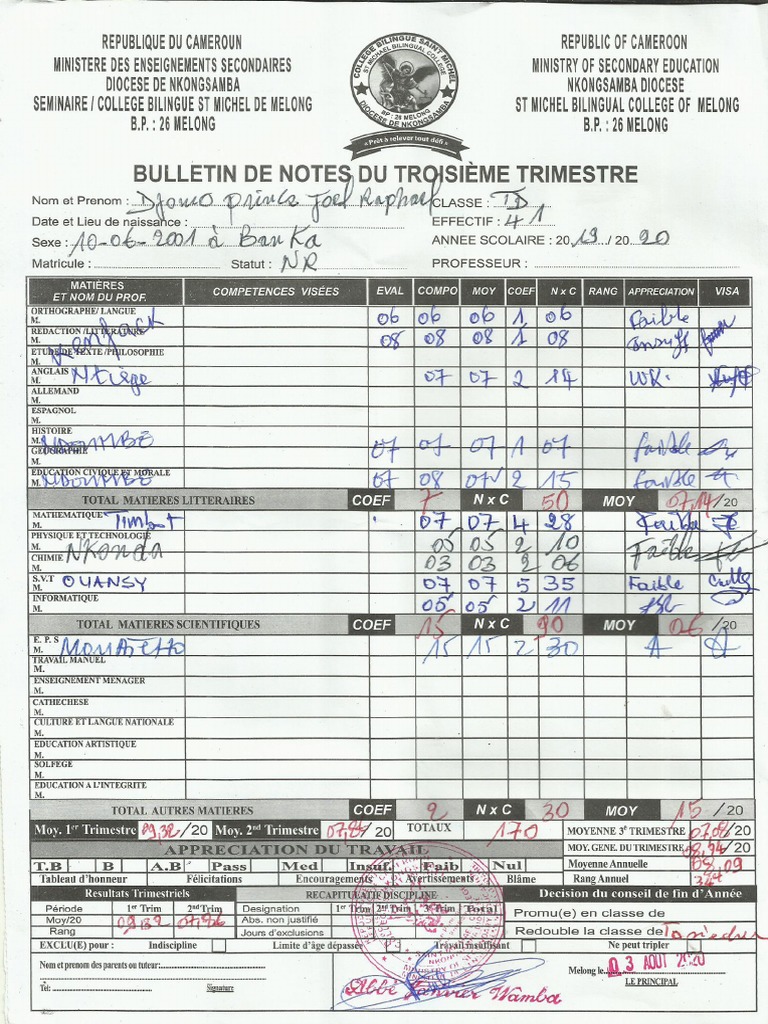 REPUBLIQUE DU CAMEROUN
MINISTERE DES ENSEIGNEMENTS SECONDAIRES
DIOCESE DE NKONGSAMBA
SEMINAIRE / COLLEGE BILINGUE ST MICHEL DE MELONG
B.P. : 26 MELONG
COLLEGE BILINGUE SAINT MICHEL
ST MICHAEL BILINGUAL COLLEGE
BP : 26 MELONG
DIOCESE DE NKONGSAMBA
« Prêt à relever tout défi »
REPUBLIC OF CAMEROON
MINISTRY OF SECONDARY EDUCATION
NKONGSAMBA DIOCESE
ST MICHEL BILINGUAL COLLEGE OF MELONG
B.P. : 26 MELONG
BULLETIN DE NOTES DU TROISIÈME TRIMESTRE
Nom et Prenom : Djomo prince Joel Raphael CLASSE : TD
Date et Lieu de naissance : EFFECTIF : 41
Sexe : 10-06-2001 à Banka ANNEE SCOLAIRE : 2019 / 2020
Matricule : Statut : NR PROFESSEUR :
MATIÈRES ET NOM DU PROF. COMPETENCES VISÉES EVAL COMPO MOY COEF N x C RANG APPRECIATION VISA
ORTHOGRAPHE/ LANGUE 06 06 06 1 06 Faible
M.
REDACTION /LITTERATURE 08 08 08 1 08 Insuff
M.
ETUDE DE TEXTE /PHILOSOPHIE
M.
ANGLAIS Ntiège 07 07 2 14 WK.
M.
ALLEMAND
M.
ESPAGNOL
M.
HISTOIRE
M. NDOUMBE
GEOGRAPHIE 07 07 07 1 07 faible
M.
EDUCATION CIVIQUE ET MORALE 07 08 07 2 15 faible
M. NDOUMBE
TOTAL MATIERES LITTERAIRES COEF 7 N x C 50 MOY 07,14/20
MATHEMATIQUE 07 07 4 28 Faible
M.
PHYSIQUE ET TECHNOLOGIE 05 05 2 10 Faible
M. Nkonda
CHIMIE 03 03 2 06
M.
S.V.T OUANSY 07 07 5 35 Faible
M.
INFORMATIQUE 05 05 2 11
M.
TOTAL MATIERES SCIENTIFIQUES COEF 15 N x C 90 MOY 06 /20
E. P. S 15 15 2 30 A
M.
TRAVAIL MANUEL
M.
ENSEIGNEMENT MENAGER
M.
CATHECHESE
M.
CULTURE ET LANGUE NATIONALE
M.
EDUCATION ARTISTIQUE
M.
SOLFEGE
M.
EDUCATION A L'INTEGRITE
M.
TOTAL AUTRES MATIERES COEF 2 N x C 30 MOY 15 /20
Moy. 1er Trimestre 09,32/20 Moy. 2nd Trimestre /20 TOTAUX 170 MOYENNE 3e TRIMESTRE 07,08/20
APPRECIATION DU TRAVAIL MOY. GENE. DU TRIMESTRE /20
T.B B A.B Pass Med Insuf. Faib Nul Moyenne Annuelle 08,09
Tableau d'honneur Félicitations Encouragements Avertissements Blâme Rang Annuel
Resultats Trimestriels RECAPITULATIF DISCIPLINE Decision du conseil de fin d'Année
Période 1er Trim 2nd Trim Designation 1er Trim 2nd Trim 3e Trim Total Promu(e) en classe de
Moy/20 09,32 Abs. non justifié Redouble la classe de
Rang Jours d'exclusions
EXCLU(E) pour : Indiscipline Limite d'âge dépassée Travail insuffisant Ne peut tripler
Nom et prenom des parents ou tuteur: Melong le 03 AOUT 2020
Tel: Signature LE PRINCIPAL
Abbé Janvier Wamba